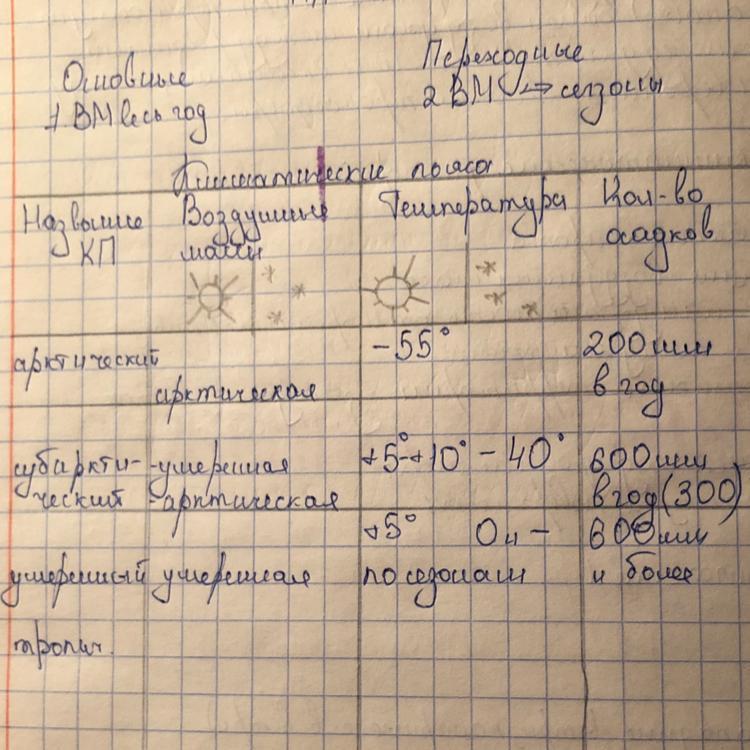 Основные
1 ВМ весь год
Переходные
2 ВМ → сезоны
Климатические пояса
Название КП
Воздушные массы
Температура
Кол-во осадков
арктический
арктическая
-55°
200 мм
в год
субаркти-
ческий
-умеренная
-арктическая
+5°-+10° -40°
600 мм
в год (300)
умеренный
умеренная
+5° 0 и -
по сезонам
600 мм
и более
тропич.